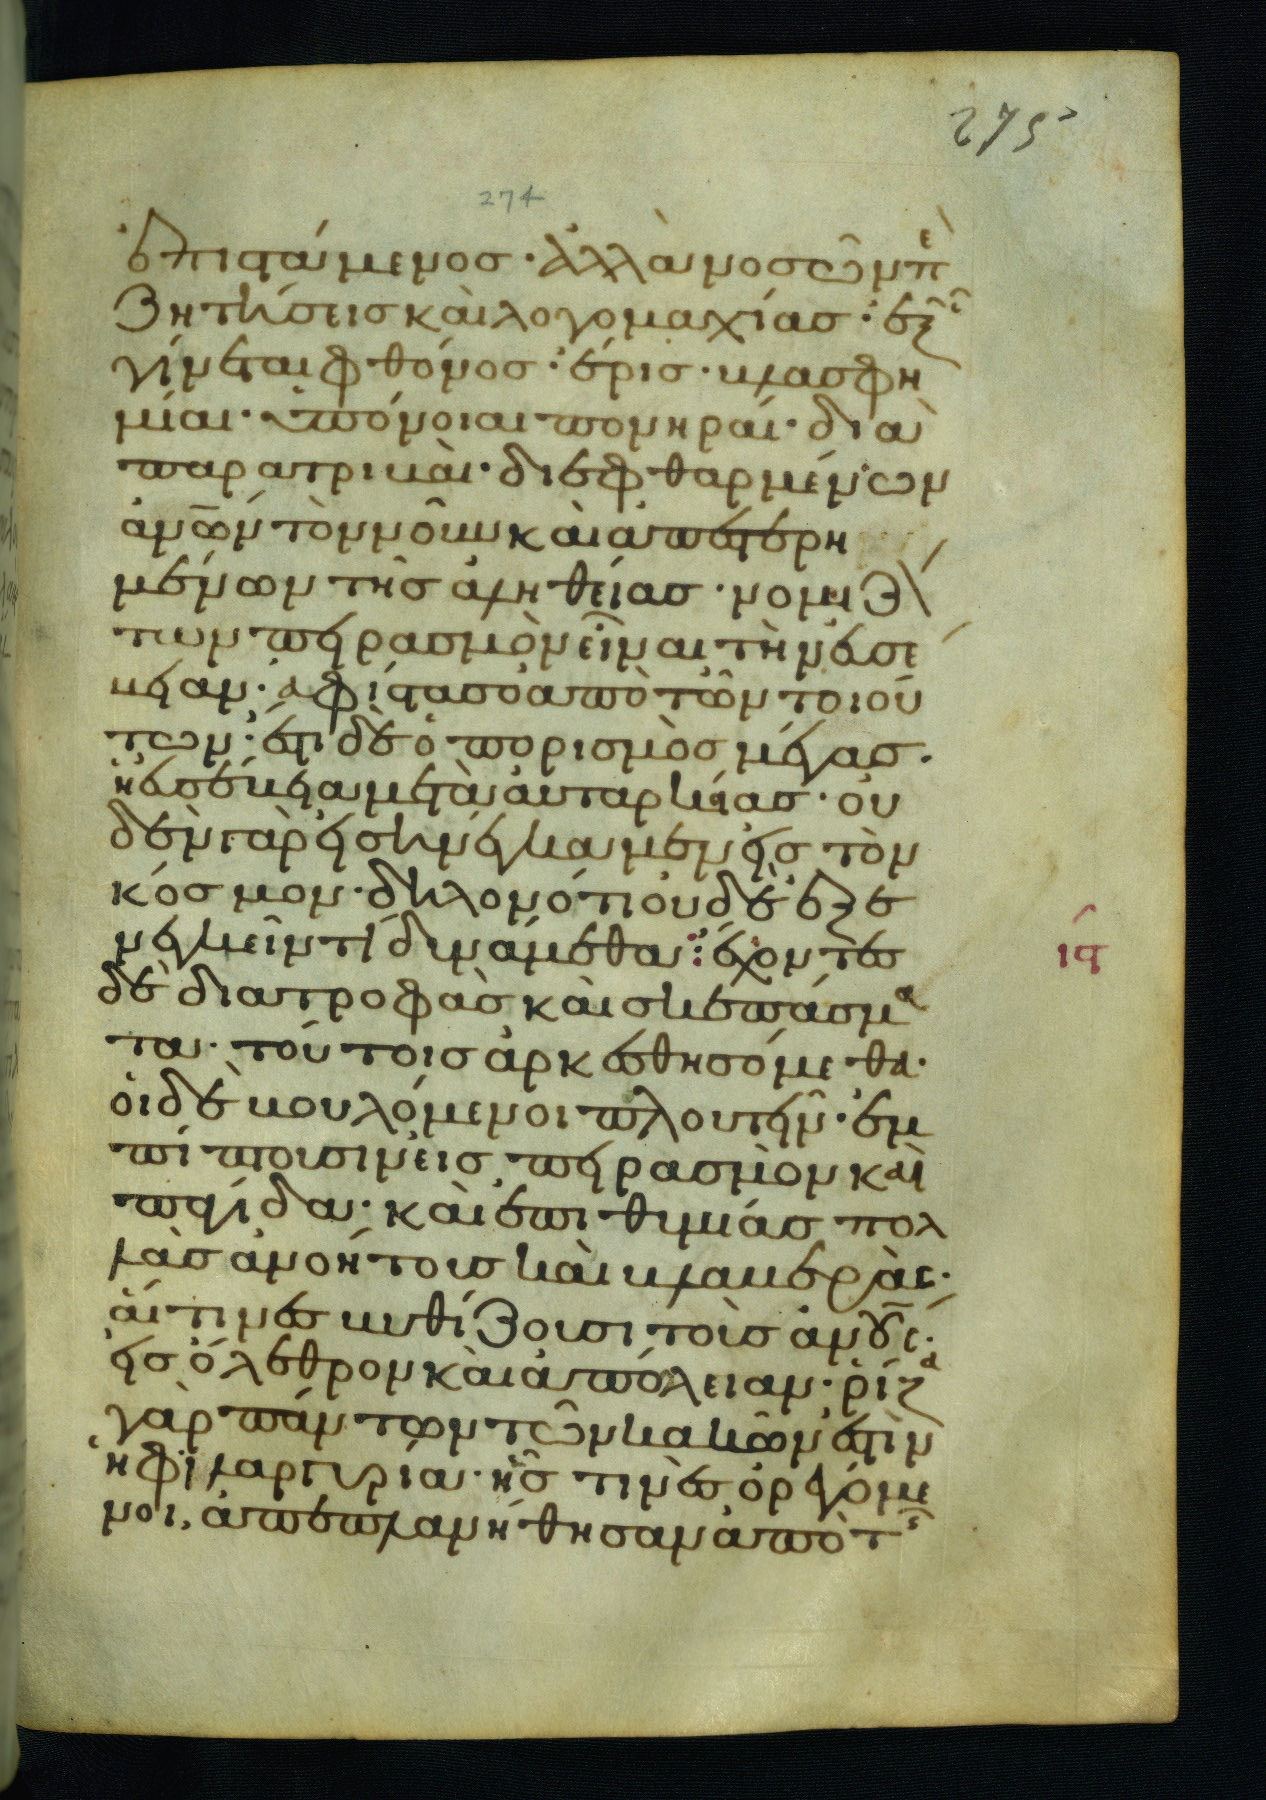 275
274
ἐπιστάμενος · ἀλλὰ νοσῶν πε
ζητήσεις καὶ λογομαχίας · ἐξ
γίνεται φθόνος · ἔρις · βλασφη
μίαι · ὑπόνοιαι πονηραί · δια
παρατριβαὶ · διεφθαρμένων
ἀνων τὸν νοῦν καὶ ἀπεστερη
μένων τῆς ἀληθείας · νομιζο
των πορισμὸν εἶναι τὴν εὐσε
βειαν · ἀφίστασο ἀπὸ τῶν τοιού
των · ἔστι δὲ ὁ πορισμὸς μέγας ·
ἡ εὐσέβεια μετὰ αὐταρκείας · οὐ
δὲν γὰρ εἰσηνέγκαμεν εἰς τὸν
κόσμον · δῆλον ὅτι οὐδὲ ἐξε
νεγκεῖν τι δυνάμεθα : ἔχοντες
ις
δὲ διατροφὰς καὶ σκεπάσμα
τα · τούτοις ἀρκεσθησόμεθα ·
οἱ δὲ βουλόμενοι πλουτεῖν · ἐμ
πίπτουσιν εἰς πειρασμὸν καὶ
παγίδα · καὶ ἐπιθυμίας πολ
λὰς ἀνοήτους καὶ βλαβεράς ·
αἵτινες βυθίζουσι τοὺς ἀνους ·
εἰς ὄλεθρον καὶ ἀπώλειαν · ῥίζα
γὰρ πάντων τῶν κακῶν ἐστὶν
ἡ φιλαργυρία · ἧς τινὲς ὀρεγόμε
νοι, ἀπεπλανήθησαν ἀπὸ τ